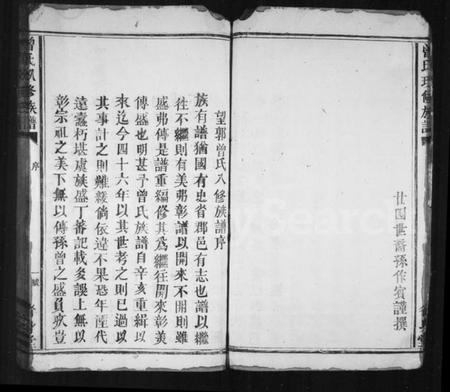 望郭曾氏八修族譜序
族有譜猶國有史省郡邑有志也譜以繼
往不繼則有美弗彰譜以開來不開則雖
盛弗傳是譜重編修其為繼往開來彰美
傳盛也明甚予曾氏族譜自辛亥重緝以
來迄今四十六年以其世考之則已過以
其事計之則難殺倘依違不果恐年湮代
遠蠹朽堪虞族盛丁番記載多誤上無以
彰宗祖之美下無以傳孫曾之盛負疚豈
曾氏
修族譜
序
廿四世裔孫作賓謹撰
曾氏
修族譜